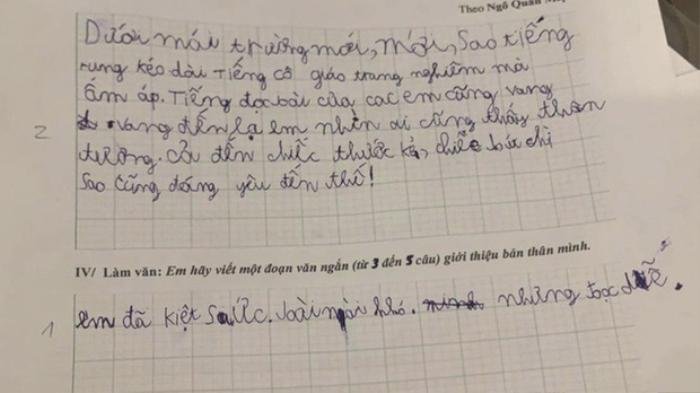 Theo Ngô Quân
Dưới mái trường mới, mới, sao tiếng
rung kéo dài Tiếng cô giáo trang nghiêm mà
ấm áp. Tiếng đọc bài của cac em cũng vang
vang đến lạ em nhìn ai cũng thấy thân
2
đương. Cả đến chiếc thước kẻ, chiếc bút chì
Sao cũng đáng yêu đến thế!
IV/ Làm văn: Em hãy viết một đoạn văn ngắn (từ 3 đến 5 câu) giới thiệu bản thân mình.
1 em đã kiệt Sức. bài này khó. nhưng